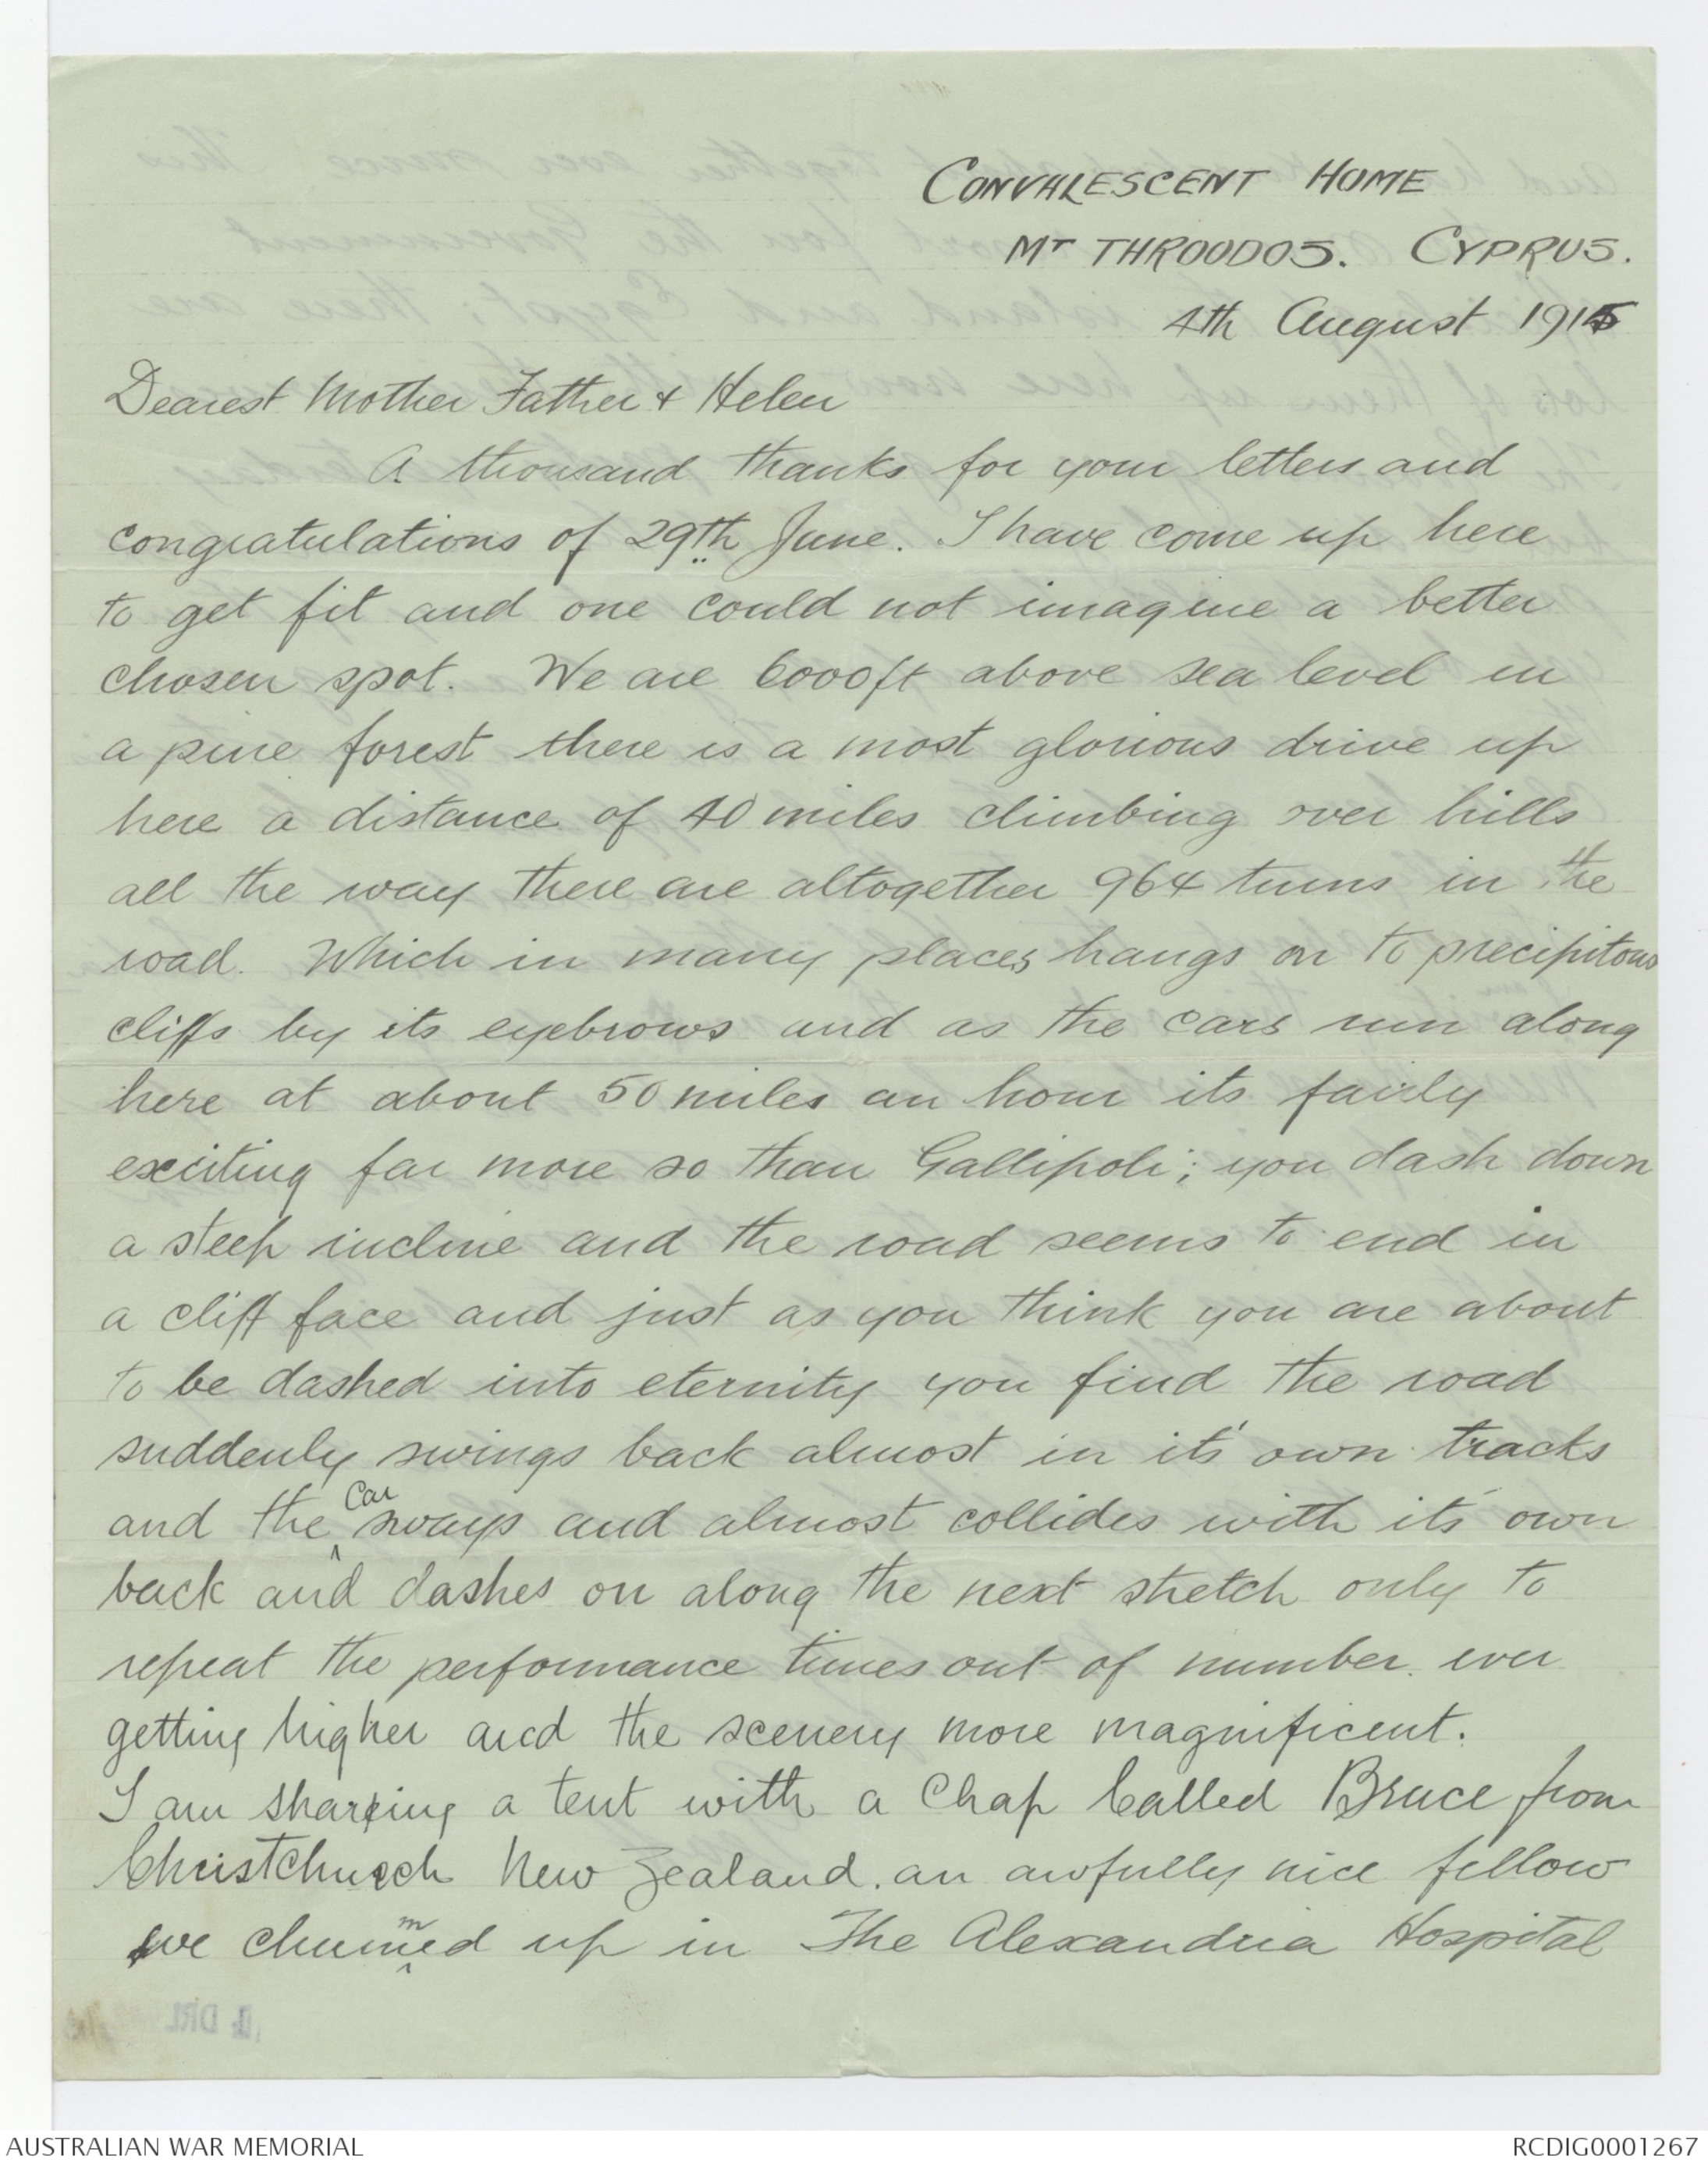 CONVALESCENT HOME
MT THROODOS. CYPRUS.
4th August 1915
Dearest Mother Father & Helen
A thousand thanks for your letters and
congratulations of 29th June. I have come up here
to get fit and one could not imagine a better
chosen spot. We are 6000ft above sea level in
a pine forest there is a most glorious drive up
here a distance of 40 miles climbing over hills
all the way there are altogether 964 turns in the
road. Which in many places hangs on to precipitous
cliffs by its eyebrows and as the cars run along
here at about 50 miles an hour its fairly
exciting far more so than Gallipoli; you dash down
a steep incline and the road seems to end in
a cliff face and just as you think you are about
to be dashed into eternity you find the road
suddenly swings back almost in it's own tracks
and the car sways and almost collides with it's own
back and dashes on along the next stretch only to
repeat the performance times out of number. ever
getting higher and the scenery more magnificent.
I am sharing a tent with a Chap Called Bruce from
Christchurch New Zealand. an awfully nice fellow
we chummed up in The Alexandria Hospital
AUSTRALIAN WAR MEMORIAL
RCDIG0001267